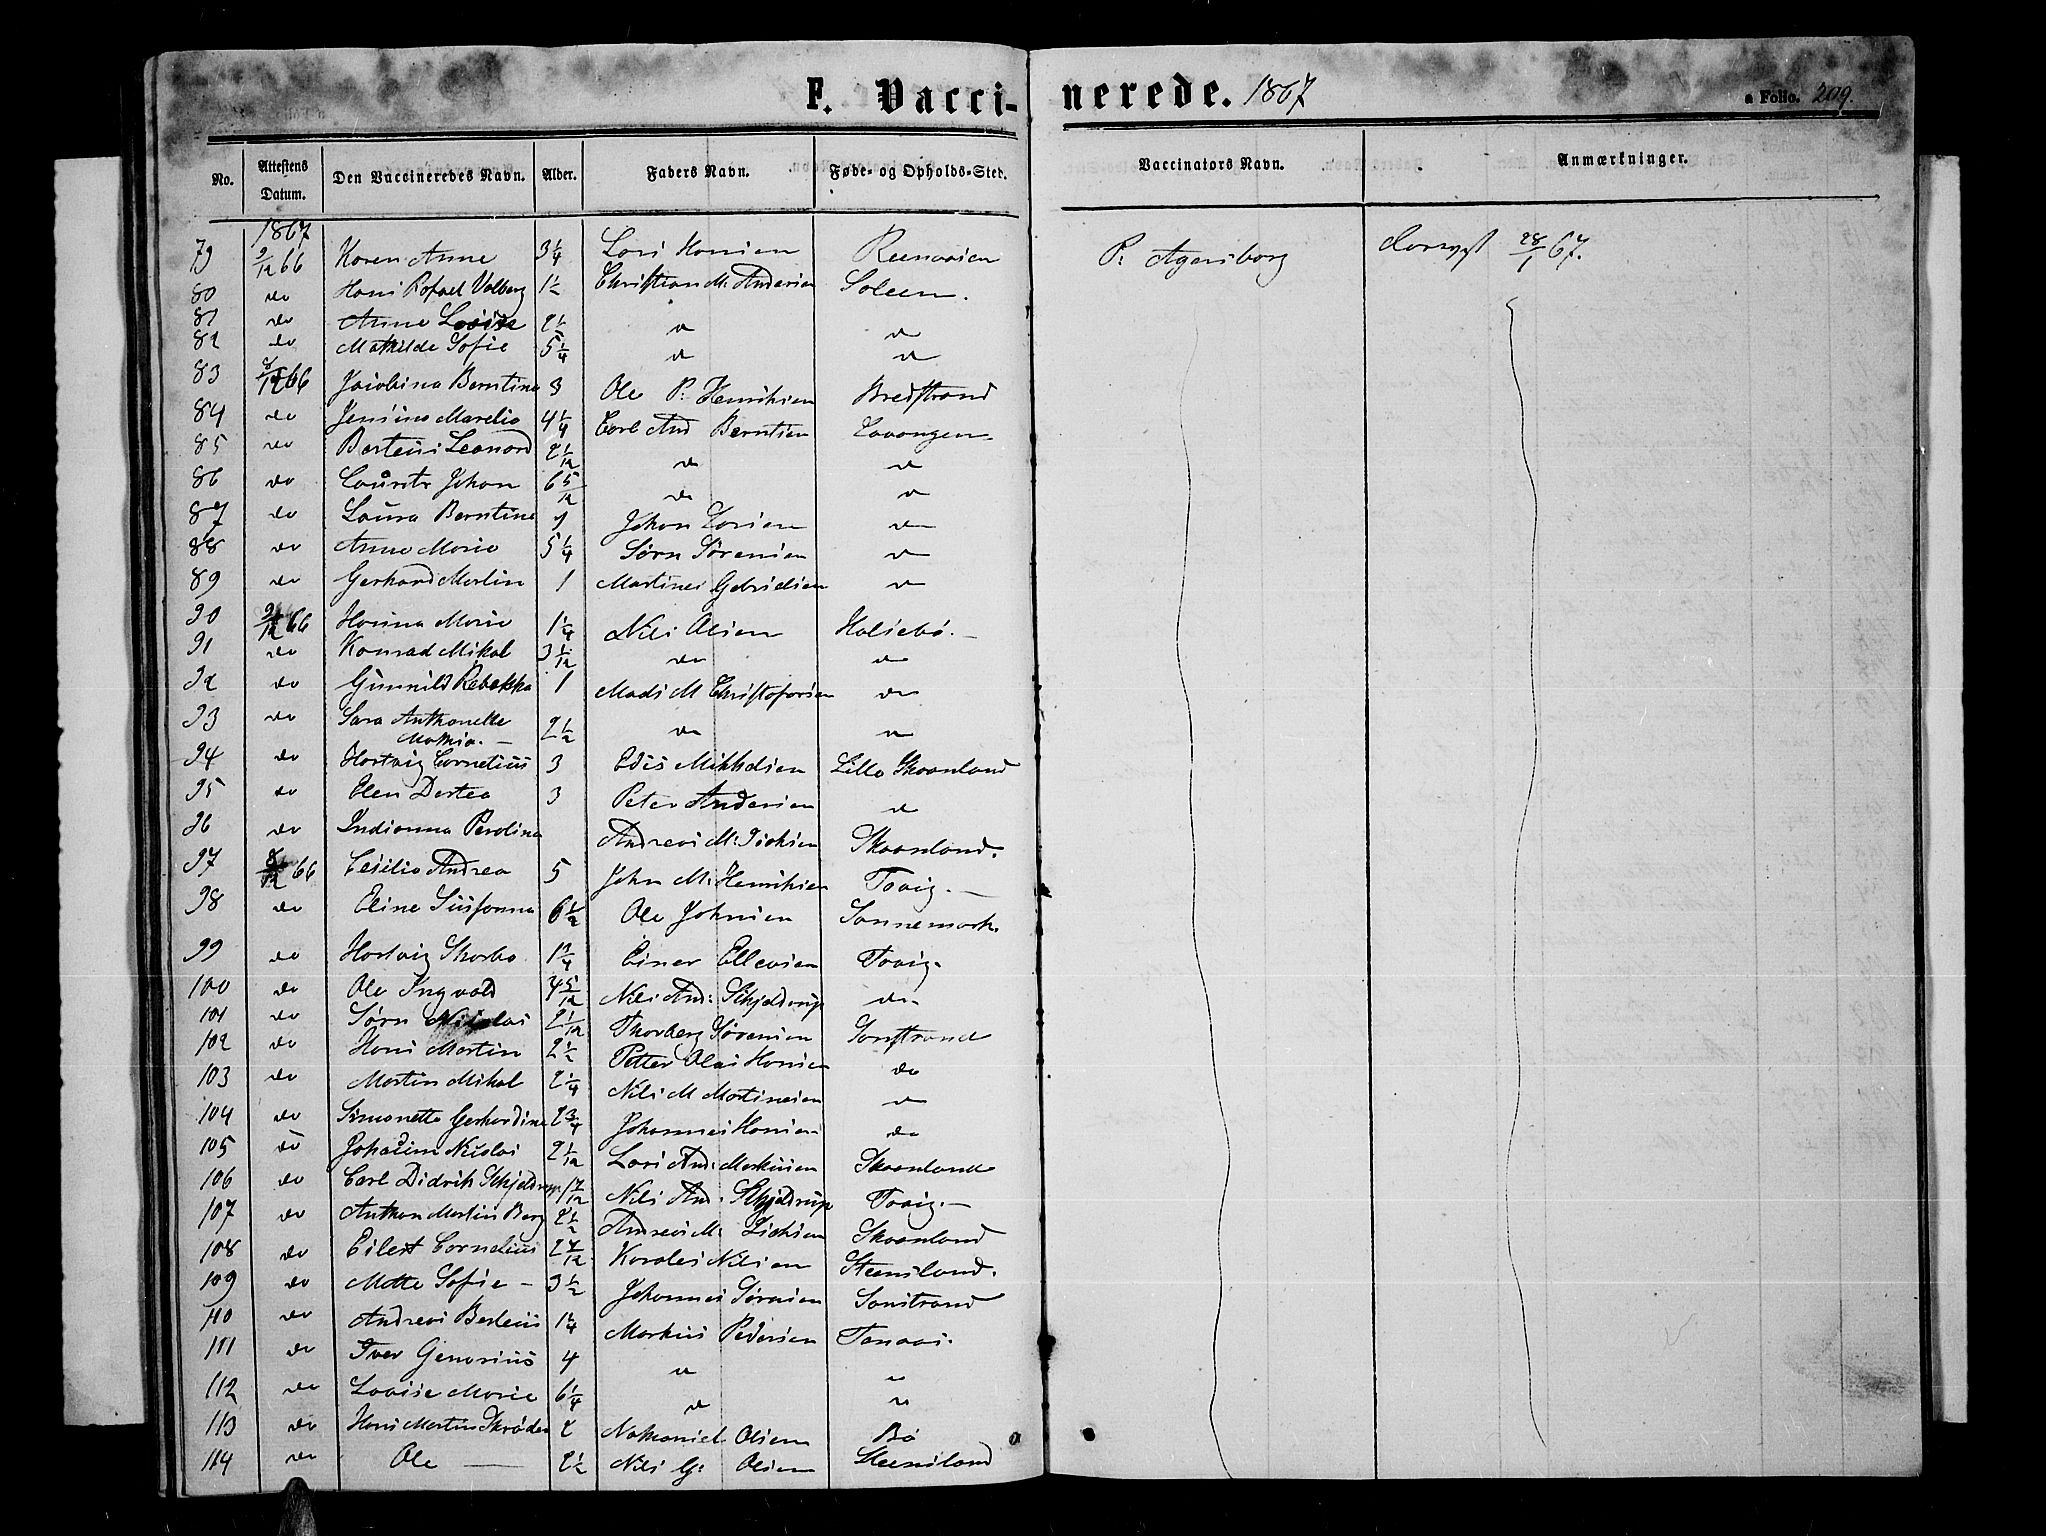 F. Vaccinerede. 1867
a Folio. 209.
No. Attestens Datum. Den Vaccineredes Navn. Alder. Faders Navn. Føde- og Opholds-Sted. Vaccinators Navn. Anmærkninger.
1867
79 9/12 66 Karen Anna 3 1/4 Lars Hansen P. Agersborg 28/1 67.
80 do Hans Rafael Valberg 1 1/2 Christian M. Andersen
81 do Anna Lovise 2 1/2 " do
82 do Mathilde Sofie 5 1/4 do do
83 8/12 66 Jacobina Berntine 3 Ole P. Henriksen Bredstrand
84 do Jensine Marelia 4 1/4 Carl And Berntsen
85 do Berteus Leonard 2 1/12 do do
86 do Laurits Johan 6 5/12 do do
87 do Laura Berntine Johan Larsen do
88 do Anne Marie 5 1/4 Sørn Sørensen do
89 do Gerhard Martin 1 do
90 9/12 66 Hansina Marie 1 1/4 Nils Olsen
91 do Konrad Mikal 3 1/12 do do
92 do Gunnild Rebekka 1 Mads M Christofersen do
93 do Sara Anthonette Mathia. 2 1/2 do do
94 do Hartvig Cornelius 3 Edis Mikkelsen Lille Skaanland
95 do Elen Dortea 3 Peter Andersen do
96 do Indianna Perolina Andreas M. Skaanland.
97 8/12 66 Cesilia Andrea 5 John M. Henriksen
98 do Eline Susanna 6 1/2 Ole Johnsen Sannemark
99 do Hartvig 1 3/4 Einer Ellevsen
100 do Ole Ingvald 4 5/12 Nils And: Schjeldrup do
101 do Sørn Nicolai 2 1/12 Thorberg Sørensen Sanstrand
102 do Hans Martin 2 1/2 Petter Olai Hansen do
103 do Martin Mikal 2 1/4 Nils M Martinesen do
104 do Simonette Gerhardine 2 3/4 Johannes Hansen do
105 do Johakim Nicolai 2 1/12 Lars And: Markusen Skaanland
106 do Carl Didrik Schjeldrup 1 7/12 Nils And. Schjeldrup
107 do Anthon Martin Berg 2 1/2 Andreas M. Skaanland
108 do Eilert Cornelius 2 7/12 Nilsen Steensland.
109 do Mette Sofie 3 1/2 Johannes Sørnsen Sanstrand
110 do Andreas Berteus 1 1/4 Markus Pedersen
111 do Iver Genarius 4 do "
112 do Lovise Marie 6 1/4 do "
113 do Hans Martin Skrøder 2 Nathaniel Olsen Bø
114 do Ole 2 1/2 Nils G: Olsen Steensland